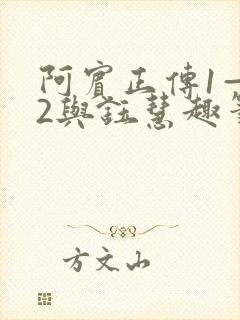 阿賓正傳1—
2與鈺慧趣
方文山